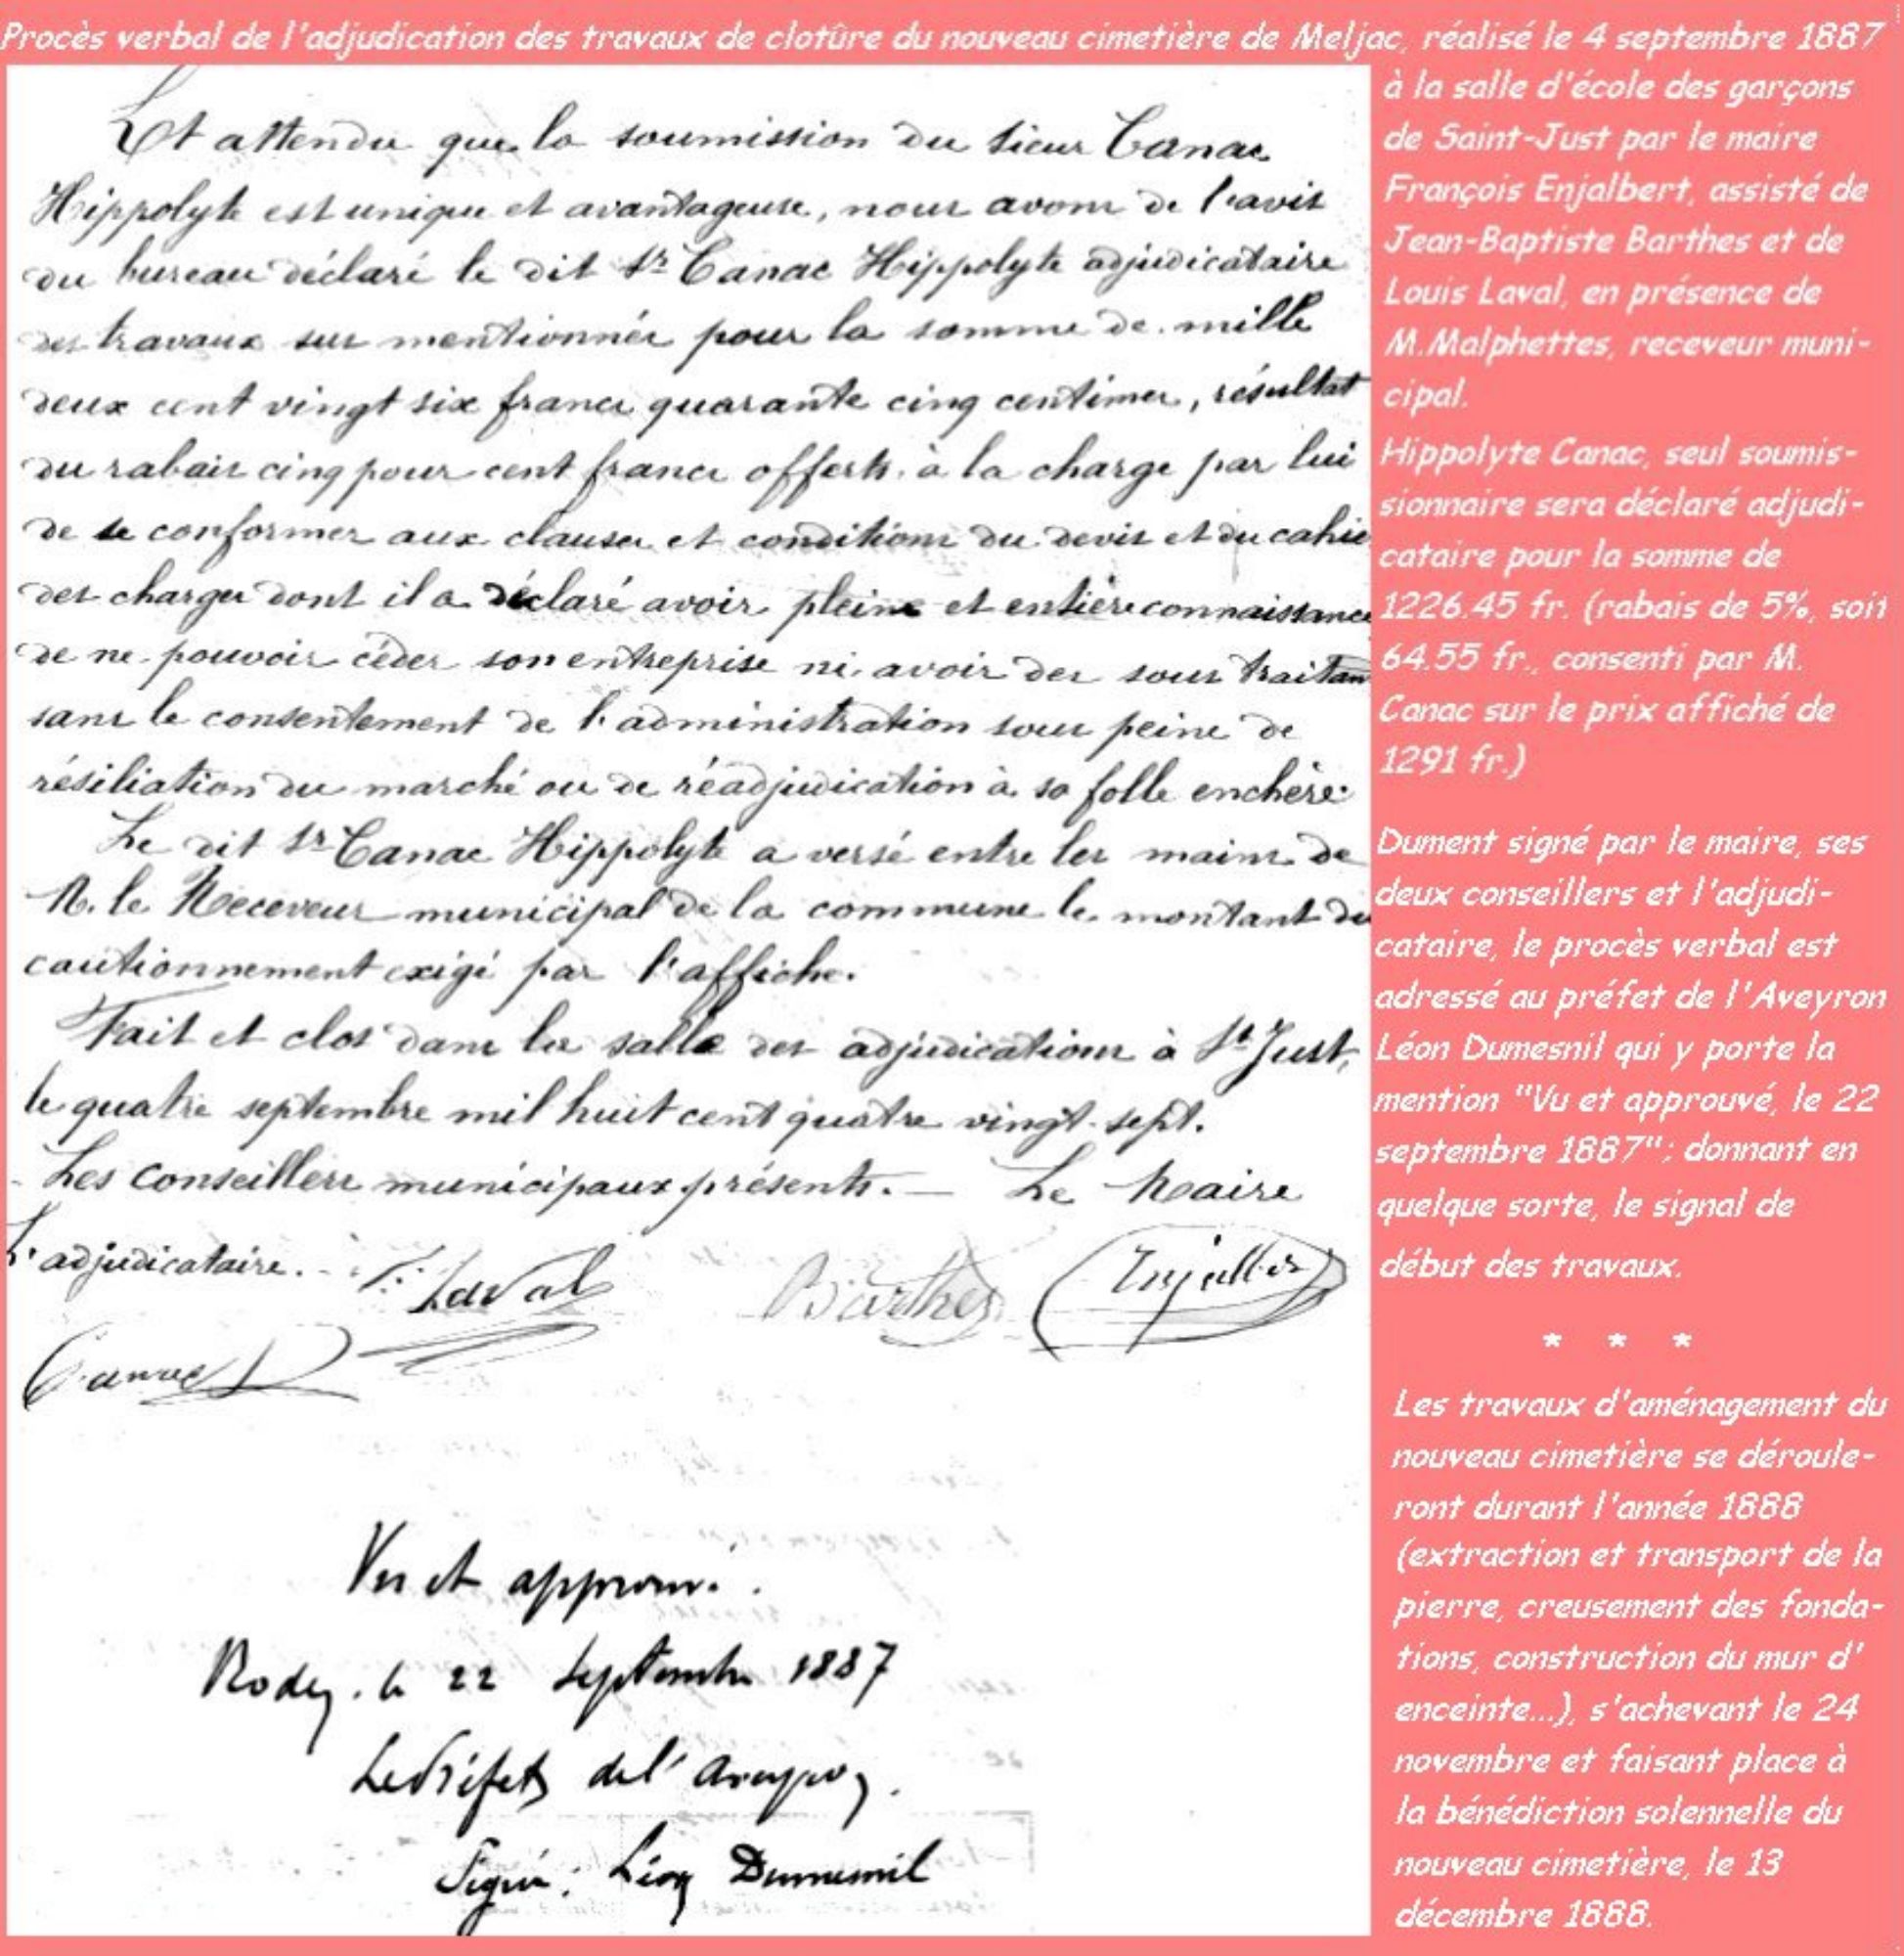 Procès verbal de l'adjudication des travaux de clotûre du nouveau cimetière de Meljac, réalisé le 4 septembre 1887
à la salle d'école des garçons
de Saint-Just par le maire
François Enjalbert, assisté de
Jean-Baptiste Barthes et de
Louis Laval, en présence de
M.Malphettes, receveur muni-
cipal.
Hippolyte Canac, seul soumis-
sionnaire sera déclaré adjudi-
cataire pour la somme de
1226.45 fr. (rabais de 5%, soit
64.55 fr., consenti par M.
Canac sur le prix affiché de
1291 fr.)
Dument signé par le maire, ses
deux conseillers et l'adjudi-
cataire, le procès verbal est
adressé au préfet de l'Aveyron
Léon Dumesnil qui y porte la
mention "Vu et approuvé, le 22
septembre 1887"; donnant en
quelque sorte, le signal de
début des travaux.
* * *
Les travaux d'aménagement du
nouveau cimetière se déroule-
ront durant l'année 1888
(extraction et transport de la
pierre, creusement des fonda-
tions, construction du mur d'
enceinte...), s'achevant le 24
novembre et faisant place à
la bénédiction solennelle du
nouveau cimetière, le 13
décembre 1888.
Et attendu que la soumission du sieur Canac
Hippolyte est unique et avantageuse, nous avons de l'avis
du bureau déclaré le dit Sr Canac Hippolyte adjudicataire
des travaux sus mentionnés pour la somme de mille
deux cent vingt six francs quarante cinq centimes, résultat
du rabais cinq pour cent francs offerts, à la charge par lui
de se conformer aux clauses et conditions du devis et du cahie
des charges dont il a déclaré avoir pleine et entière connaissance
de ne pouvoir céder son entreprise ni avoir des sous traitan
sans le consentement de l'administration sous peine de
résiliation du marché ou de réadjudication à sa folle enchère.
Le dit Sr Canac Hippolyte a versé entre les mains de
M. le Receveur municipal de la commune le montant du
cautionnement exigé par l'affiche.
Fait et clos dans la salle des adjudications à St Just,
le quatre septembre mil huit cent quatre vingt-sept.
Les Conseillers municipaux présents. — Le Maire
L'adjudicataire.
Laval Barthes Enjalbert
Canac
Vu et approuvé.
Rodez, le 22 Septembre 1887
Le Préfet de l'Aveyron,
Signé: Léon Dumesnil